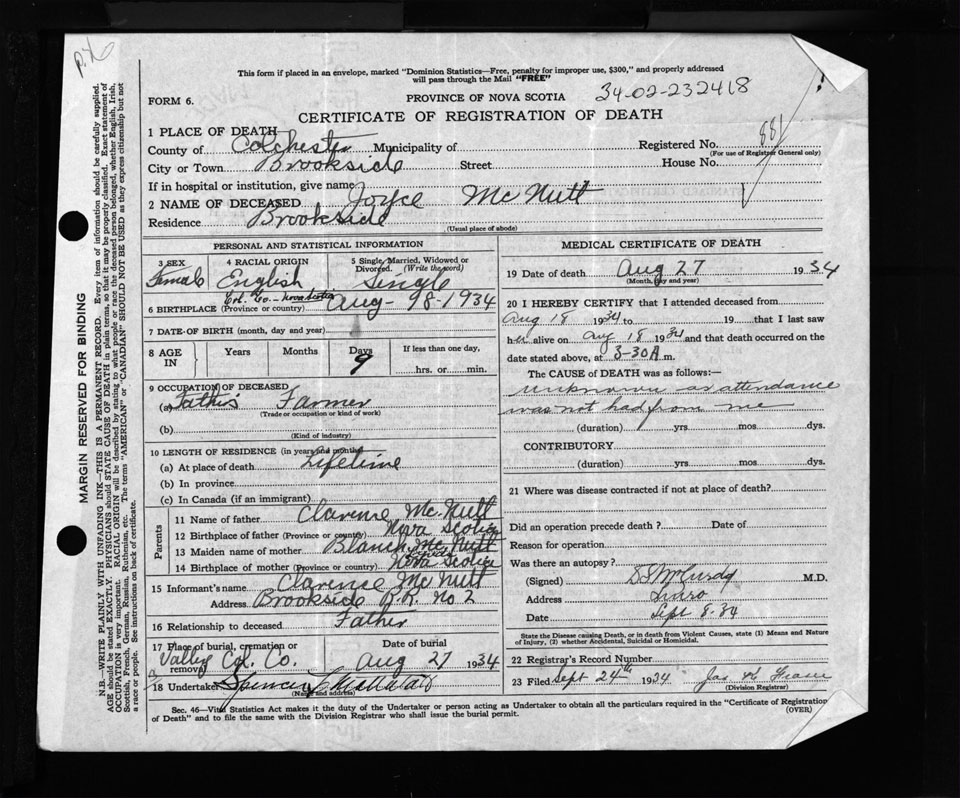 This form if placed in an envelope, marked "Dominion Statistics—Free, penalty for improper use, $300," and properly addressed
will pass through the Mail "FREE"
FORM 6.
PROVINCE OF NOVA SCOTIA
34-02-232418
CERTIFICATE OF REGISTRATION OF DEATH
1 PLACE OF DEATH
County of Colchester Municipality of Registered No. 881
(For use of Registrar General only)
City or Town Brookside Street House No.
If in hospital or institution, give name
2 NAME OF DECEASED Joyce McNutt
Residence Brookside
(Usual place of abode)
PERSONAL AND STATISTICAL INFORMATION
3 SEX 4 RACIAL ORIGIN 5 Single, Married, Widowed or Divorced. (Write the word)
Female English Single
Col. Co. - Nova Scotia
6 BIRTHPLACE (Province or country) Aug - 98-1934
7 DATE OF BIRTH (month, day and year)
8 AGE IN Years Months Days If less than one day,
9 hrs. or min.
9 OCCUPATION OF DECEASED
(a) Father's Farmer
(Trade or occupation or kind of work)
(b)
(Kind of industry)
10 LENGTH OF RESIDENCE (in years and months)
(a) At place of death Lifetime
(b) In province
(c) In Canada (if an immigrant)
Parents
11 Name of father Clarence McNutt
12 Birthplace of father (Province or country) Nova Scotia
13 Maiden name of mother Blanch McNutt
14 Birthplace of mother (Province or country) Nova Scotia
15 Informant's name Clarence McNutt
Address Brookside R.R. No 2
16 Relationship to deceased Father
17 Place of burial, cremation or removal Date of burial
Valley Col. Co. Aug 27 1934
18 Undertaker Spencer
(Name and address)
MEDICAL CERTIFICATE OF DEATH
19 Date of death Aug 27 1934
(Month, day and year)
20 I HEREBY CERTIFY that I attended deceased from
Aug 18 1934 to 19 that I last saw
her alive on Aug 18 1934 and that death occurred on the
date stated above, at 3-30A m.
The CAUSE OF DEATH was as follows:—
unknown as attendance
was not had from me
(duration) yrs. mos. dys.
CONTRIBUTORY
(duration) yrs. mos. dys.
21 Where was disease contracted if not at place of death?
Did an operation precede death? Date of
Reason for operation
Was there an autopsy?
(Signed) McCurdy M.D.
Address Truro
Date Sept 8-34
State the Disease causing Death, or in death from Violent Causes, state (1) Means and Nature
of Injury, (2) whether Accidental, Suicidal or Homicidal.
22 Registrar's Record Number
23 Filed Sept 24th 1934
(Division Registrar)
Sec. 46—Vital Statistics Act makes it the duty of the Undertaker or person acting as Undertaker to obtain all the particulars required in the "Certificate of Registration
of Death" and to file the same with the Division Registrar who shall issue the burial permit.
(OVER)
MARGIN RESERVED FOR BINDING
N.B.—WRITE PLAINLY WITH UNFADING INK—THIS IS A PERMANENT RECORD. Every item of information should be carefully supplied.
AGE should be stated EXACTLY. PHYSICIANS should STATE CAUSE OF DEATH in plain terms, so that it may be properly classified. Exact statement of
OCCUPATION is very important. RACIAL ORIGIN will be described by stating to what people or race the deceased person belonged, whether English, Irish,
Scottish, French, German, Russian, Ruthenian, etc. The terms "AMERICAN" or "CANADIAN" SHOULD NOT BE USED as they express citizenship but not
a race or people. See instructions on back of certificate.